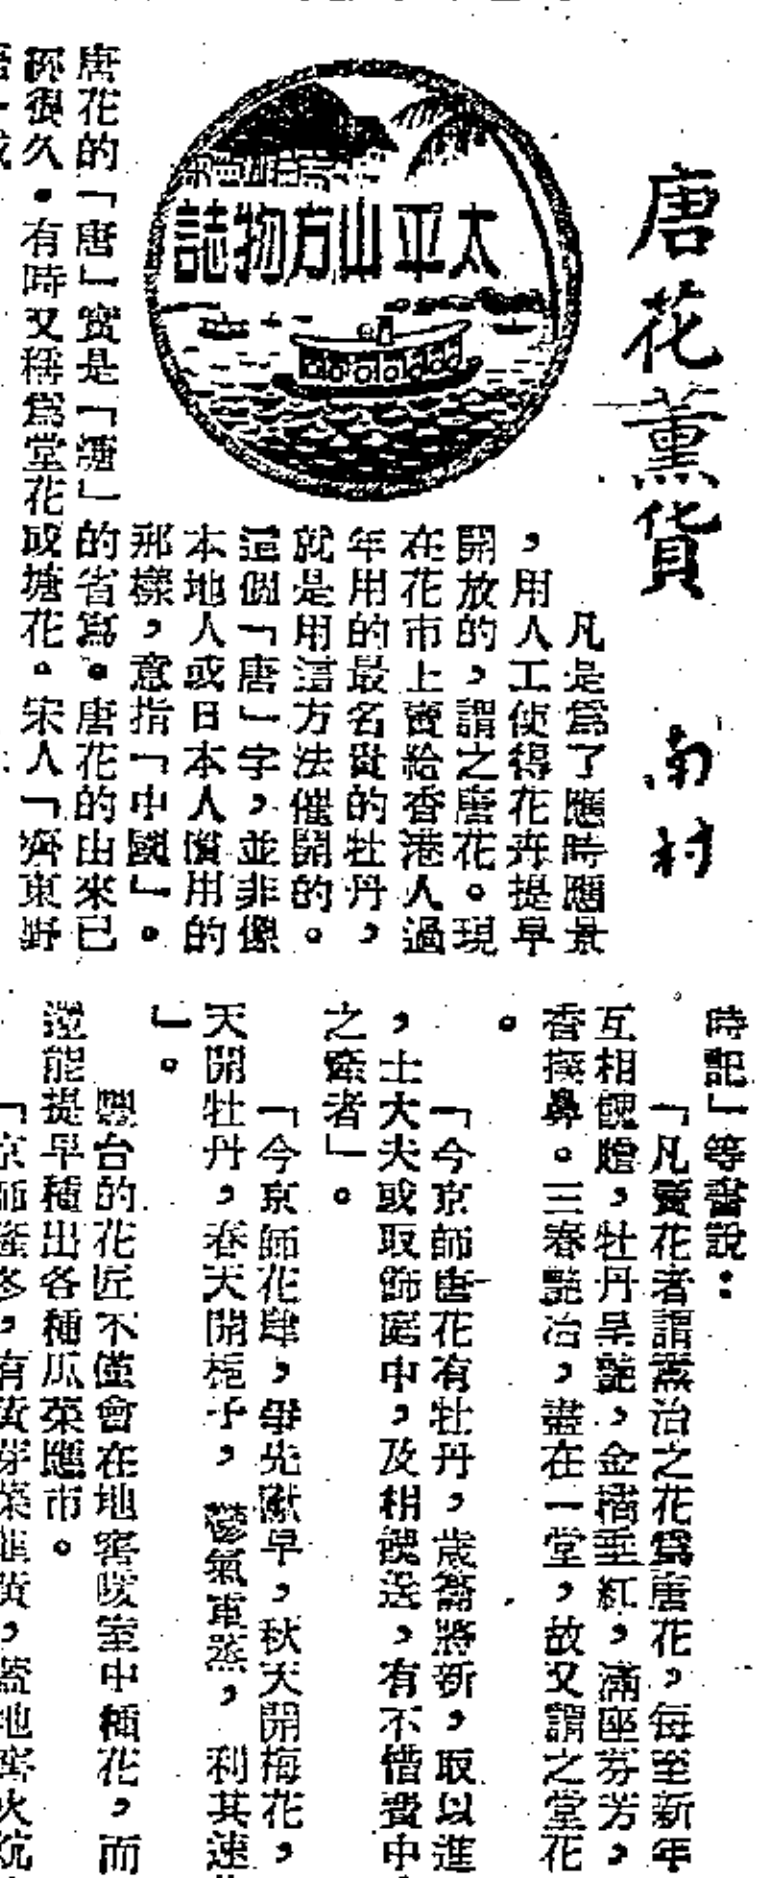 唐花薰貨
南村
太平山方物誌
凡是爲了應時應景
，用人工使得花卉提早
開放的，謂之唐花。現
在花市上賣給香港人過
年用的最名貴的牡丹，
就是用這方法催開的。
這個「唐」字，並非像
本地人或日本人慣用的
那樣，意指「中國」。
唐花的「唐」實是「煻」的省寫。唐花的由來已
很久。有時又稱爲堂花或塘花。宋人「齊東野
時記」等書說：
「凡賣花者謂薰治之花爲唐花，每至新年
互相餽贈，牡丹呈艷，金橘垂紅，滿座芬芳，
香撲鼻。三春艷冶，盡在一堂，故又謂之堂花
。
「今京師唐花有牡丹，歲籥將新，取以進
，士大夫或取飾庭中，及相餽送，有不惜費中
之產者」。
「今京師花肆，每先獻早，秋天開梅花，
天開牡丹，春天開梔子，鬱氣重蒸，利其速
」。
豐台的花匠不僅會在地窖暖室中種花，而
還能提早種出各種瓜菜應市。
「京師隆冬，有黃芽菜韮黃，蓋地窖火炕